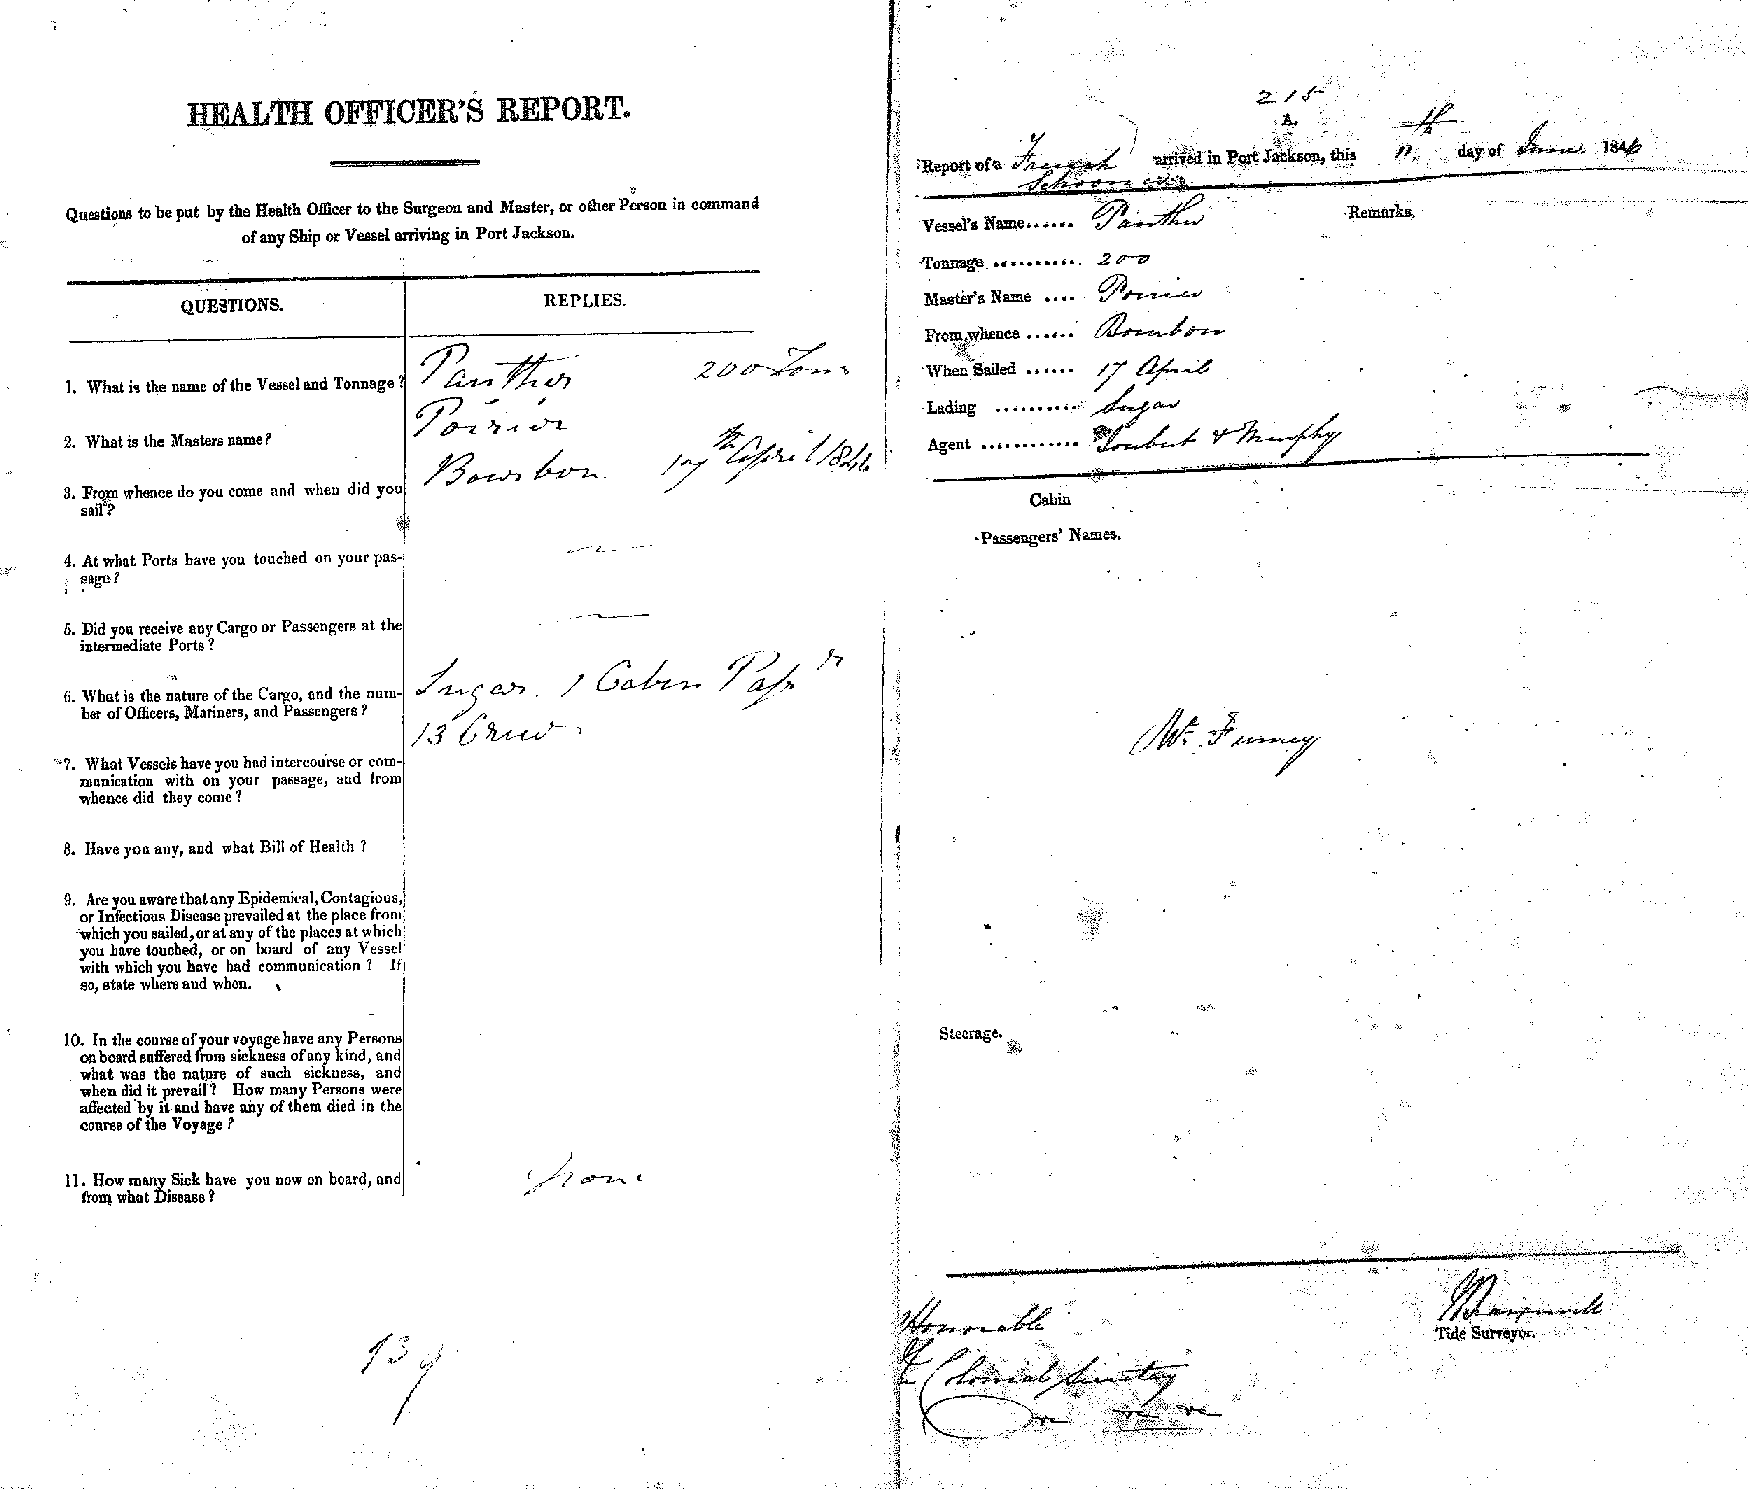 HEALTH OFFICER'S REPORT.
Questions to be put by the Health Officer to the Surgeon and Master, or other Person in command
of any Ship or Vessel arriving in Port Jackson.
QUESTIONS.
REPLIES.
1. What is the name of the Vessel and Tonnage?
Panther 200 Tons
2. What is the Masters name?
Poirier
3. From whence do you come and when did you
sail?
Bourbon 17th April 1846
4. At what Ports have you touched on your pas-
sage?
5. Did you receive any Cargo or Passengers at the
intermediate Ports?
6. What is the nature of the Cargo, and the num-
ber of Officers, Mariners, and Passengers?
Sugar. 1 Cabin Passr
13 Crew
7. What Vessels have you had intercourse or com-
munication with on your passage, and from
whence did they come?
8. Have you any, and what Bill of Health?
9. Are you aware that any Epidemical, Contagious,
or Infectious Disease prevailed at the place from
which you sailed, or at any of the places at which
you have touched, or on board of any Vessel
with which you have had communication? If
so, state where and when.
10. In the course of your voyage have any Persons
on board suffered from sickness of any kind, and
what was the nature of such sickness, and
when did it prevail? How many Persons were
affected by it and have any of them died in the
course of the Voyage?
11. How many Sick have you now on board, and
from what Disease?
None
215
A.
Report of a French arrived in Port Jackson, this 11th day of June 1846
Schooner
Vessel's Name...... Panther
Remarks.
Tonnage .......... 200
Master's Name .... Poirier
From whence ...... Bourbon
When Sailed ...... 17 April
Lading .......... Sugar
Agent ............ Joubert & Murphy
Cabin
Passengers' Names.
Mr.
Steerage.
Tide Surveyor.
Honorable
The Colonial Secretary